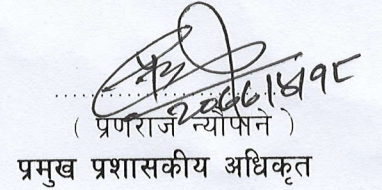 २०६६।४।१८
( प्रणराज न्यौपाने )
प्रमुख प्रशासकीय अधिकृत